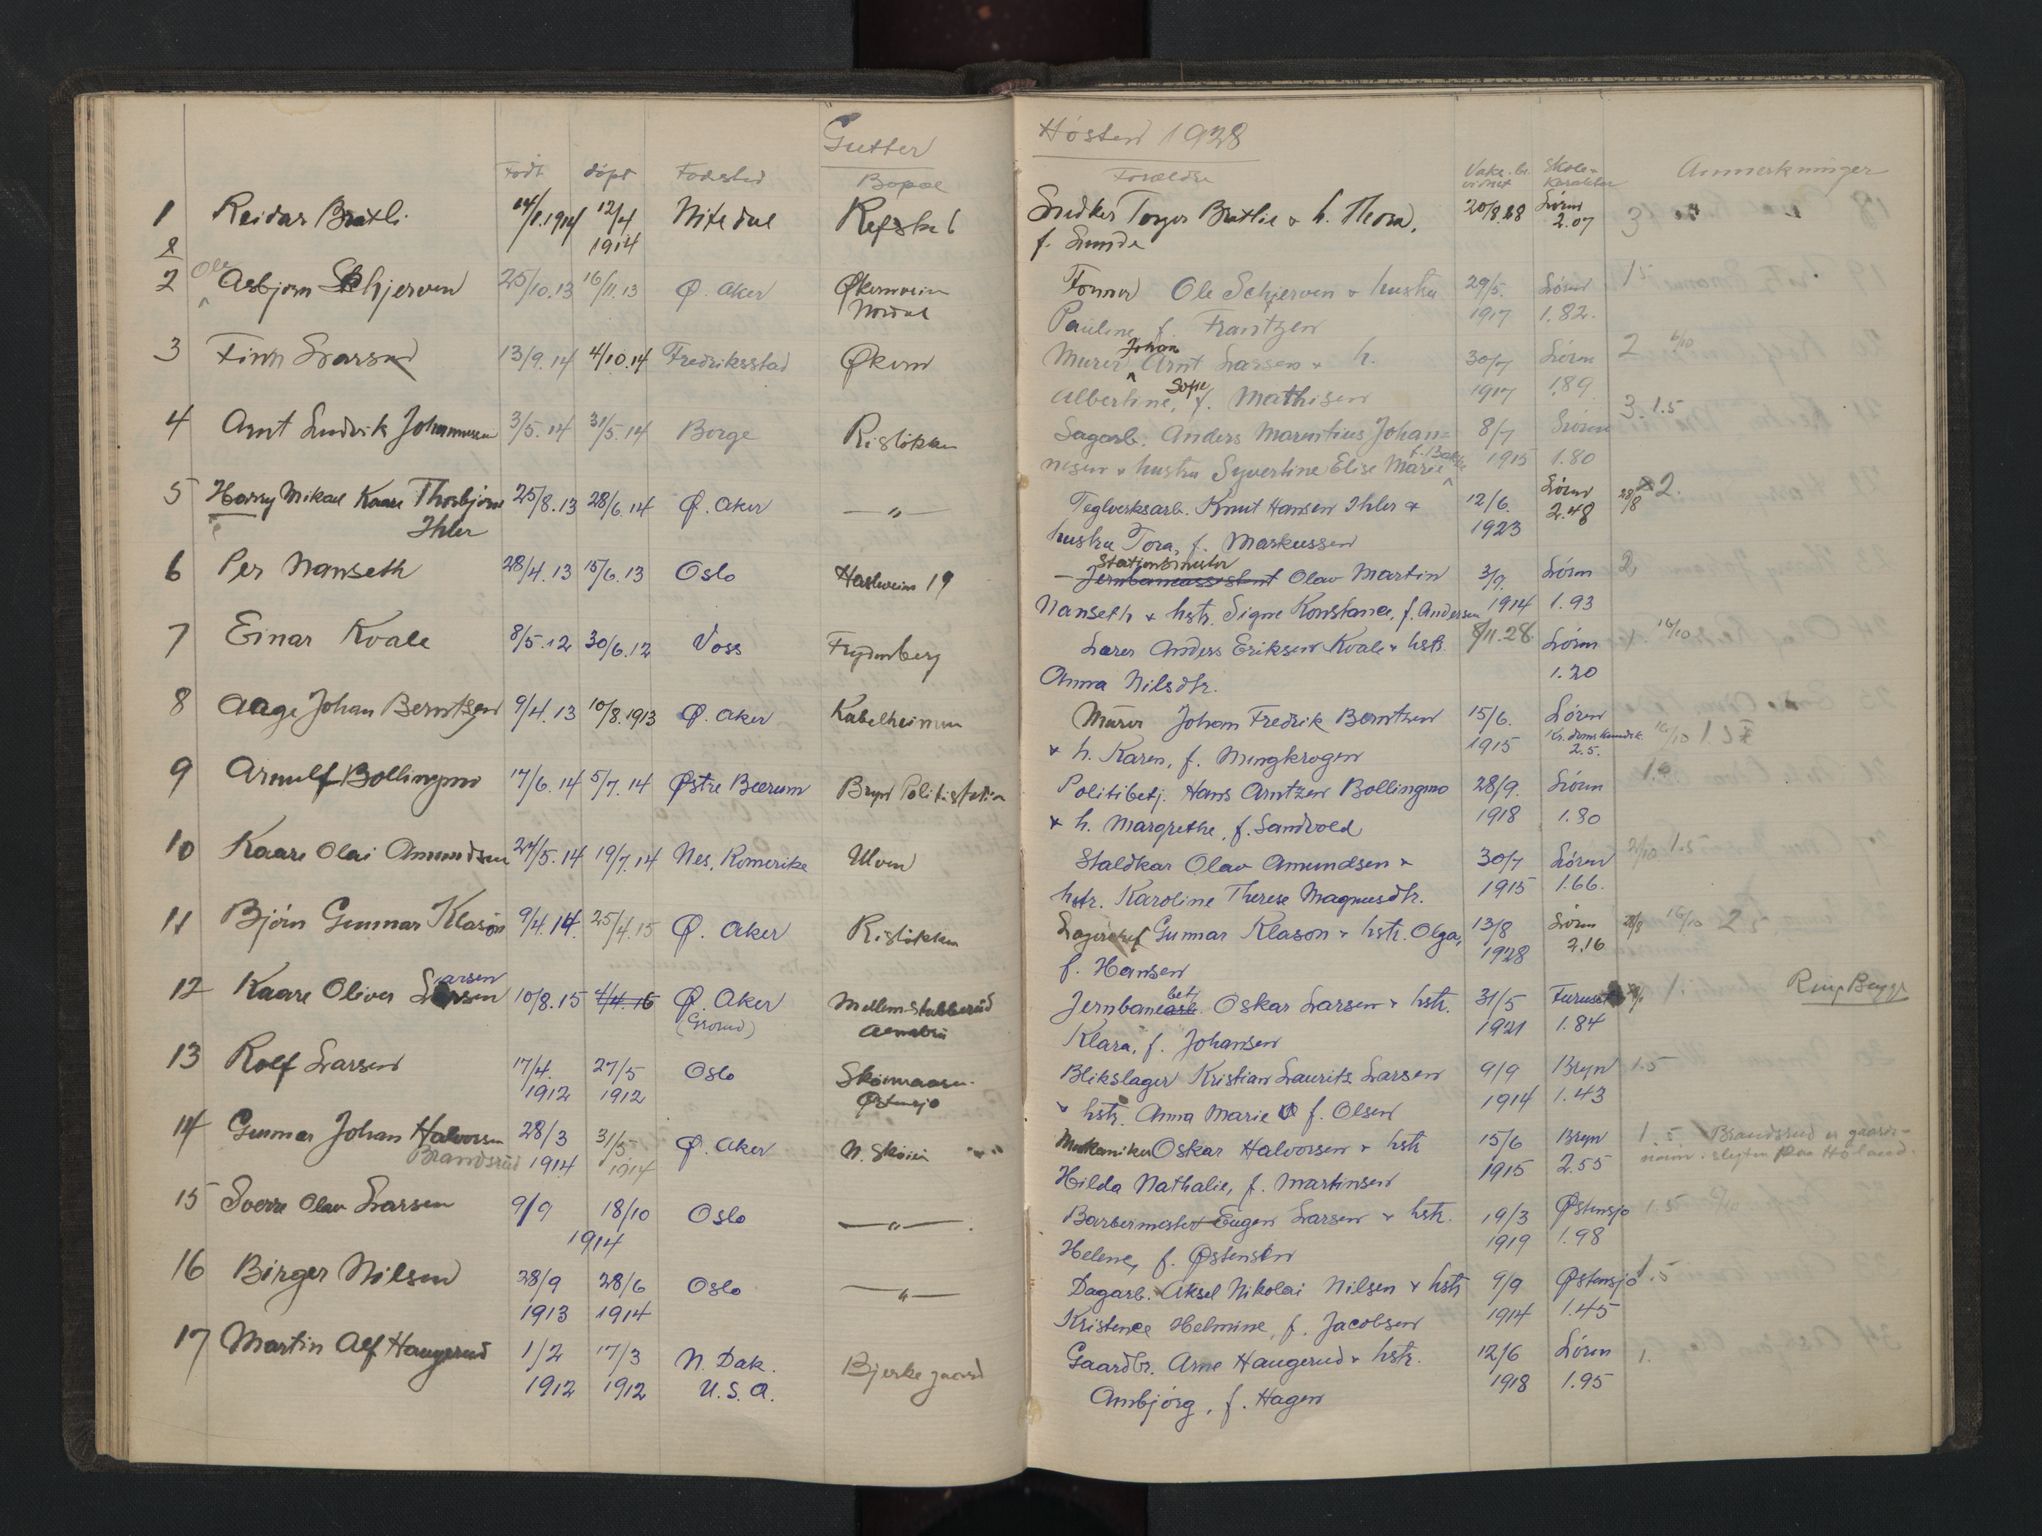 Gutter
Født døpt Fødested Bopæl
1 Reidar Bratli 14/1.1914 12/4 1914 Nitedal Refstad
2 Ole Asbjørn Schjerven 25/10.13 16/11.13 Ø. Aker Økernveien Nordal
3 Finn Larsen 13/9.14 4/10.14 Fredriksstad Økern
4 Arnt Ludvik Johannessen 3/5.14 31/5.14 Borge Risløkken
5 Harry Mikael Kaare Thorbjørn Ihler 25/8.13 28/6.14 Ø. Aker — " —
6 Per Nanseth 28/4.13 15/6.13 Oslo Hasleveien 19
7 Einar Kvale 8/5.12 30/6.12 Voss Frydenberg
8 Aage Johan Berntzen 9/4.13 10/8.1913 Ø. Aker Kabelheimen
9 Arnulf Bollingmo 17/6.14 5/7.14 Østre Bærum Bryn Politistation
10 Kaare Olai Amundsen 27/5.14 19/7.14 Nes, Romerike Ulven
11 Bjørn Gunnar Klason 9/4.14. 25/4.15 Ø. Aker Risløkken
12 Kaare Oliver Larsen 10/8.15 4/4.16 Ø. Aker (Grorud) Mellem-Stubberud
13 Rolf Larsen 17/4. 1912 27/5 1912 Oslo Østensjø
14 Gunnar Johan Halvorsen Brandsrud 28/3 1914 31/5 1914 Ø. Aker N. Skøien
15 Sverre Olav Larsen 9/9 18/10 1914 Oslo — " —
16 Birger Nilsen 28/9 1913 28/6 1914 Oslo — " —
17 Martin Alf Haugerud 1/2 1912 17/3 1912 N. Dak. U.S.A. Bjerke gaard
Høsten 1928
Forældre Vaks. br. vidnet Skole- karakter Anmerkninger
Sndker Torger Bratlie & h. Thora, 20/8.28 Løren 3
f. Lunde 2.07
Tomner Ole Schjerven & hustru 29/5. Løren 1.5
Pauline, f. Frantzen 1917 1.82.
Murer Johan Arnt Larsen & h. 30/7 Løren 2 6/10
Albertine, Sofie f. Mathisen 1917 1.89
Sagarb. Anders Marentius Johan= 8/7 Løren 3. 1.5
nesen & hustru Syvertine Elise Marie f. Bakke 1915 1.80
Teglverksarb. Knut Hansen Ihler & 12/6. Løren 28/8 2
hustru Tora, f. Markussen 1923 2.48
Jernbaneassistent Olav Martin 3/9 Løren 2,
Nanseth & hstr. Signe Konstance, f. Andersen 1914 1.93
Lærer Anders Eriksen Kvale & hstr. 8/11.28. Løren 1. 16/10
Anna Nilsdtr. 1.20
Murer Johan Fredrik Berntzen 15/6. Løren
& h. Karen, f. Mungkrogen 1915 Kr.doms kundsk. 2.5. 16/10
Politibetj. Hans Arntzen Bollingmo 28/9. Løren 1.5
& h. Margrethe, f. Sandvold 1918 1.80
Staldkar Olav Amundsen & 30/7 Løren 2/10 1.5
hstr. Karoline Therese Magnusdtr. 1915 1.66.
Lagerchef Gunnar Klason & hstr. Olga, 13/8 Løren 28/8 16/10 2
f. Hansen 1928 2.16
Jernbanearb. bet. Oskar Larsen & hstr. 31/5 Furuset
Klara, f. Johansen 1921 1.84
Blikslager Kristian Lauritz Larsen 9/9 Bryn 1.5
& hstr. Anna Marie f. Olsen 1914 1.43
Mekaniker Oskar Halvorsen & hstr 15/6 Bryn 1.5. Brandsrud er gaards-
Hilda Nathalie, f. Martinsen 1915 2.55 navn i slegten fra Høland.
Barbermester Eugen Larsen & hstr. 19/3 Østensjø 1.5
Helene, f. Østensen 1919 1.98
Dagarb. Aksel Nikolai Nilsen & hstr 9/9 Østensjø 1.5
Kristence Helmine, f. Jacobsen 1914 1.45
Gaardbr. Arne Haugerud & hstr. 12/6 Løren 1.
Ambjørg, f. Hagen 1918 1.95